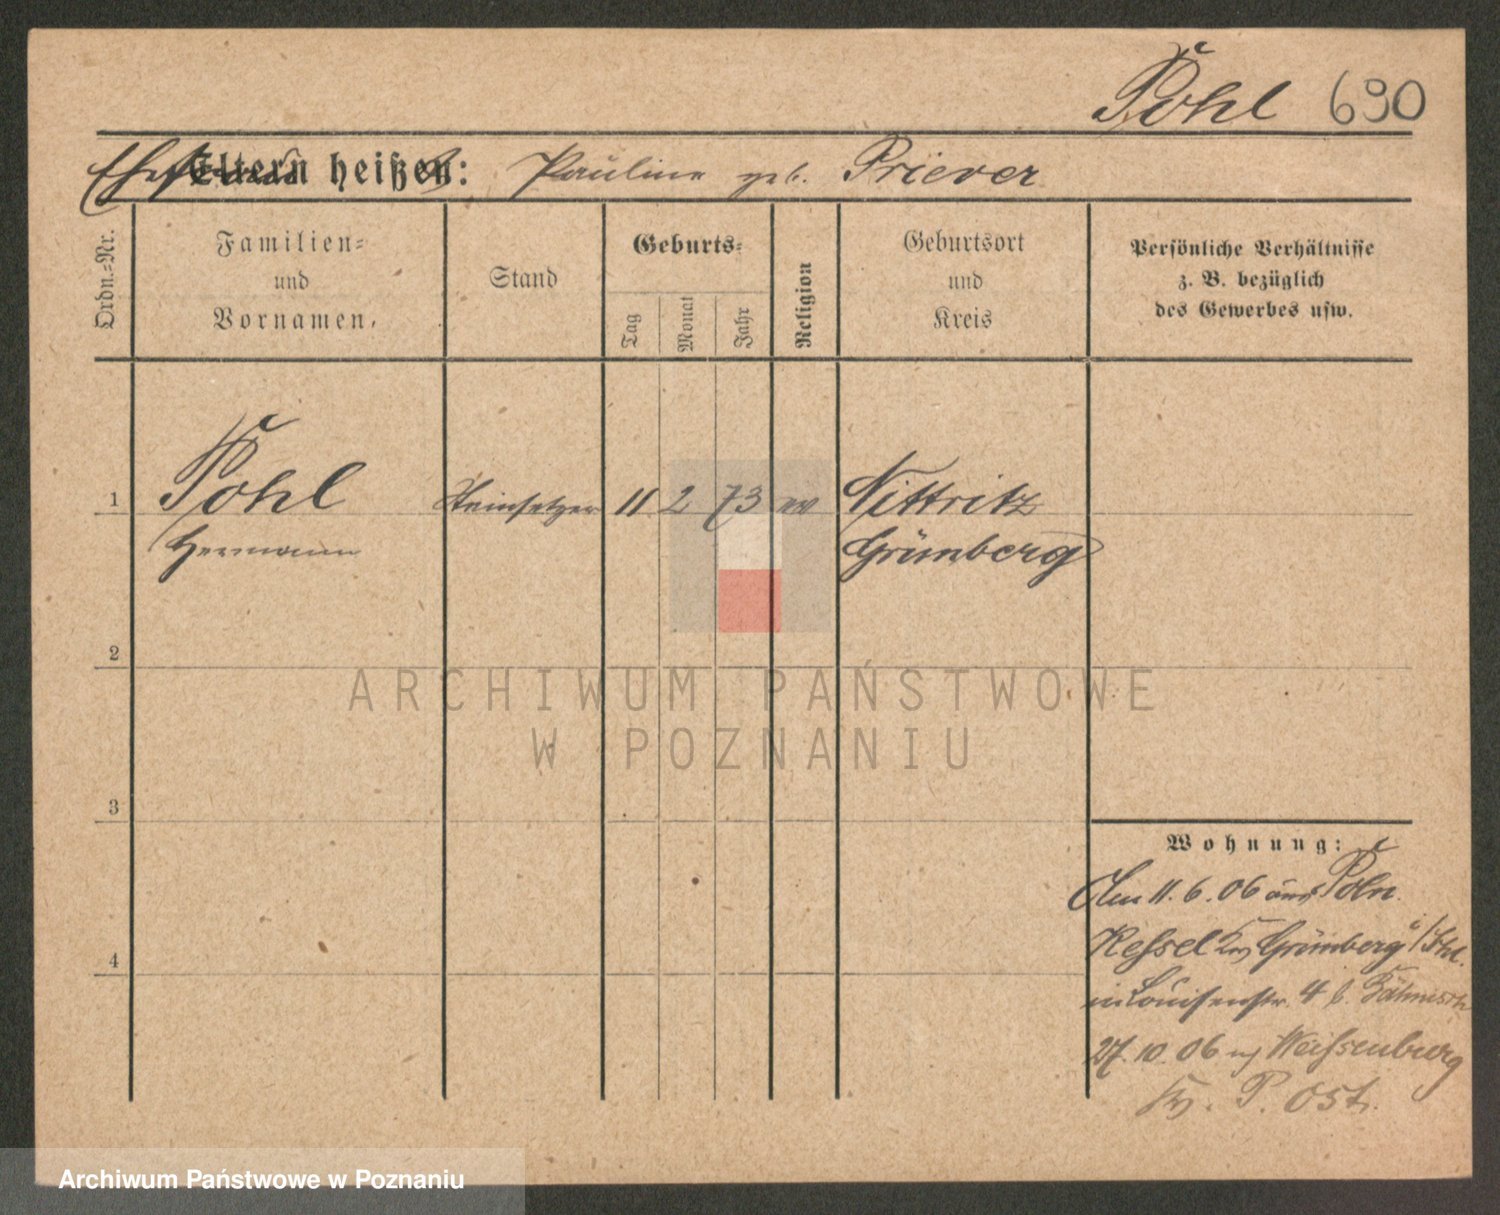 Pohl 690
Eltern heißen: Pauline geb. Priever
Ordn.=Nr.
Familien=
und
Vornamen.
Stand
Geburts=
Tag
Monat
Jahr
Religion
Geburtsort
und
Kreis
Persönliche Verhältnisse
z. B. bezüglich
des Gewerbes usw.
1 Pohl Steinsetzer 11 2 73 ev Nittritz
Hermann Grünberg
2
3
4
Wohnung:
Am 11.6.06 aus Poln.
Kessel Krs Grünberg i/Schl.
in Louisenstr. 4 b. Böhnisch
27.10.06 n/ Weissenburg
Krs. P. Ost.
ARCHIWUM PAŃSTWOWE
W POZNANIU
Archiwum Państwowe w Poznaniu